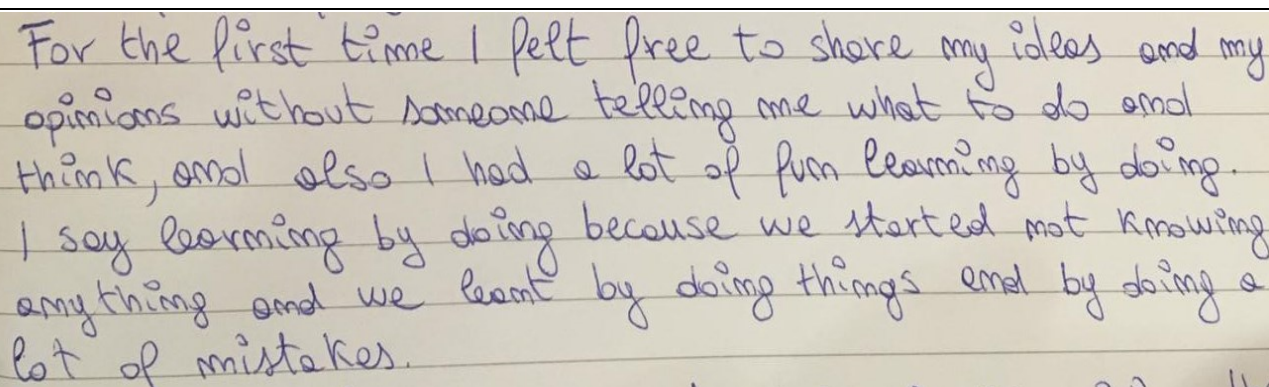 For the first time I felt free to share my ideas and my
opinions without someone telling me what to do and
think, and also I had a lot of fun learning by doing.
I say learning by doing because we started not knowing
anything and we leant by doing things and by doing a
lot of mistakes.